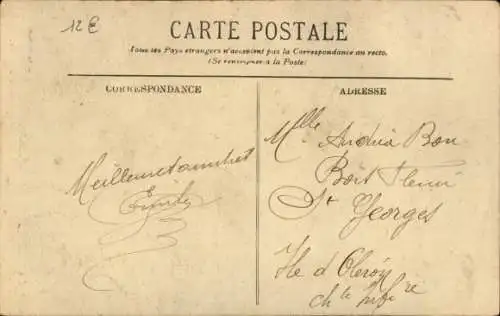 12 E
CARTE POSTALE
Tous les Pays étrangers n'acceptent pas la Correspondance au recto.
(Se renseigner à la Poste)
CORRESPONDANCE
ADRESSE
Meilleures amitiés
Emily
Mlle Andréa Bon
St Georges
Ile d Oleron
chte Infére